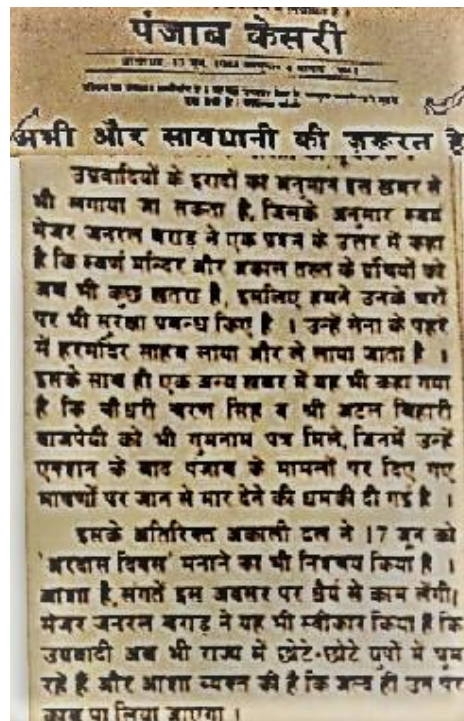 पंजाब केसरी
अभी और सावधानी की ज़रूरत है
उग्रवादियों के इरादों का अनुमान इस खबर से
भी लगाया जा सकता है, जिसके अनुसार स्वयं
मेजर जनरल बराड़ ने एक प्रश्न के उत्तर में कहा
है कि स्वर्ण मन्दिर और अकाल तख्त के ग्रंथियों को
अब भी कुछ खतरा है, इसलिए हमने उनके घरों
पर भी सुरक्षा प्रबन्ध किए है । उन्हें सेना के पहरे
में हरमंदिर साहब लाया और ले जाया जाता है ।
इसके साथ ही एक अन्य खबर में यह भी कहा गया
है कि चौधरी चरण सिंह व श्री अटल बिहारी
वाजपेयी को भी गुमनाम पत्र मिले, जिनमें उन्हें
एक्शन के बाद पंजाब के मामलों पर दिए गए
भाषणों पर जान से मार देने की धमकी दी गई है ।
इसके अतिरिक्त अकाली दल ने 17 जून को
'अरदास दिवस' मनाने का भी निश्चय किया है ।
आशा है, संगतें इस अवसर पर धैर्य से काम लेंगी।
मेजर जनरल बराड़ ने यह भी स्वीकार किया है कि
उग्रवादी अब भी राज्य में छोटे-छोटे ग्रुपों में घूम
रहे हैं और आशा व्यक्त की है कि जल्द ही उन पर
काबू पा लिया जाएगा ।